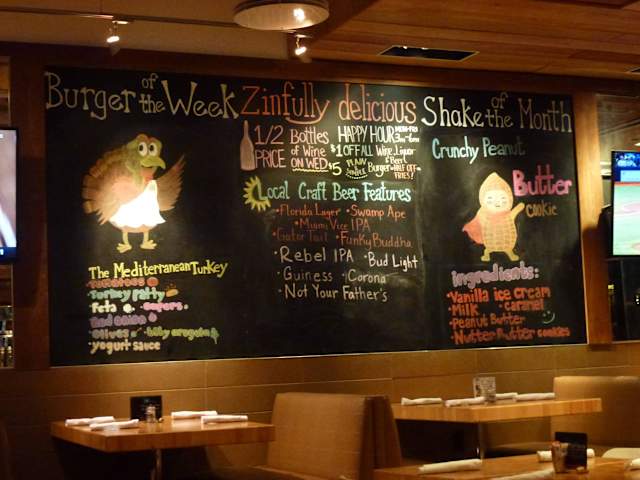 Burger of the Week
The Mediterranean Turkey
• tomatoes
• Turkey patty
• feta • onions
• Olives
• yogurt sauce
Zinfully delicious
1/2 PRICE Bottles of Wine on WED
HAPPY HOUR
$1 OFF ALL Wine, Liquor & Beer
$5 PLAIN & SIMPLE Burger HALF OFF FRIES!
Local Craft Beer Features
• Florida Lager • Swamp Ape
• Miami Vice IPA
• Gator Tail • Funky Buddha
• Rebel IPA • Bud Light
• Guiness • Corona
• Not Your Father's
Shake of the Month
Crunchy Peanut
Butter
cookie
ingredients:
• Vanilla ice cream
• Milk • caramel
• Peanut Butter
• Nutter Butter cookies